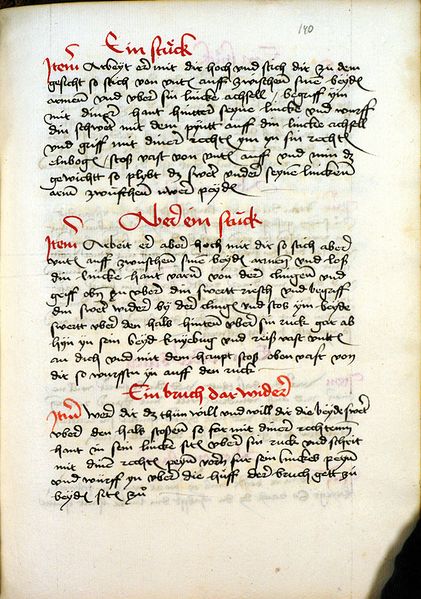 140
Ein stuck
Item Arbeyt er mit dir hoch und stich dir zu dem
gesicht so stich von unt auff zwischen sine beyd
armen und uber sin lincke achsell / begriff ym
mit diner hant hinder seyne lincke und wurff
din schwert mit dem pfutt auff din lincke achsell
und griff mit diner recht yn yn sin recht
elnbogen / stoß vast von unt auff und nim dz
gewicht so plybt dz swert under seyne lincken
arm zwuschen uwer peyd
Aber ein stuck
Item Arbeit er aber hoch mit dir so stich aber
unt auff zwischen sine beyd armen und loß
din lincke hant varn von der clingen und
griff ob zu uber din swertt und begriff
din swert wider by der cling und stos ym beyde
swertt uber den halß hinten uber sin ruck gar ab
hyn yn sein beyd knyebug und reiß vast unt
an dich und mit dem haupt stoß oben vast von
dir so wurffstu yn auff den ruck
Ein bruch dar wider
Item Wer dir dz thun will und will dir die beyde swert
uber den halß stossen so far mit diner rechtenn
hant in sein lincke sit uber sin ruck und schreit
mit dine recht peyn vorn fur sein linckes peyn
und wurff yn uber die huff der bruch gett zu
beyden sit zu